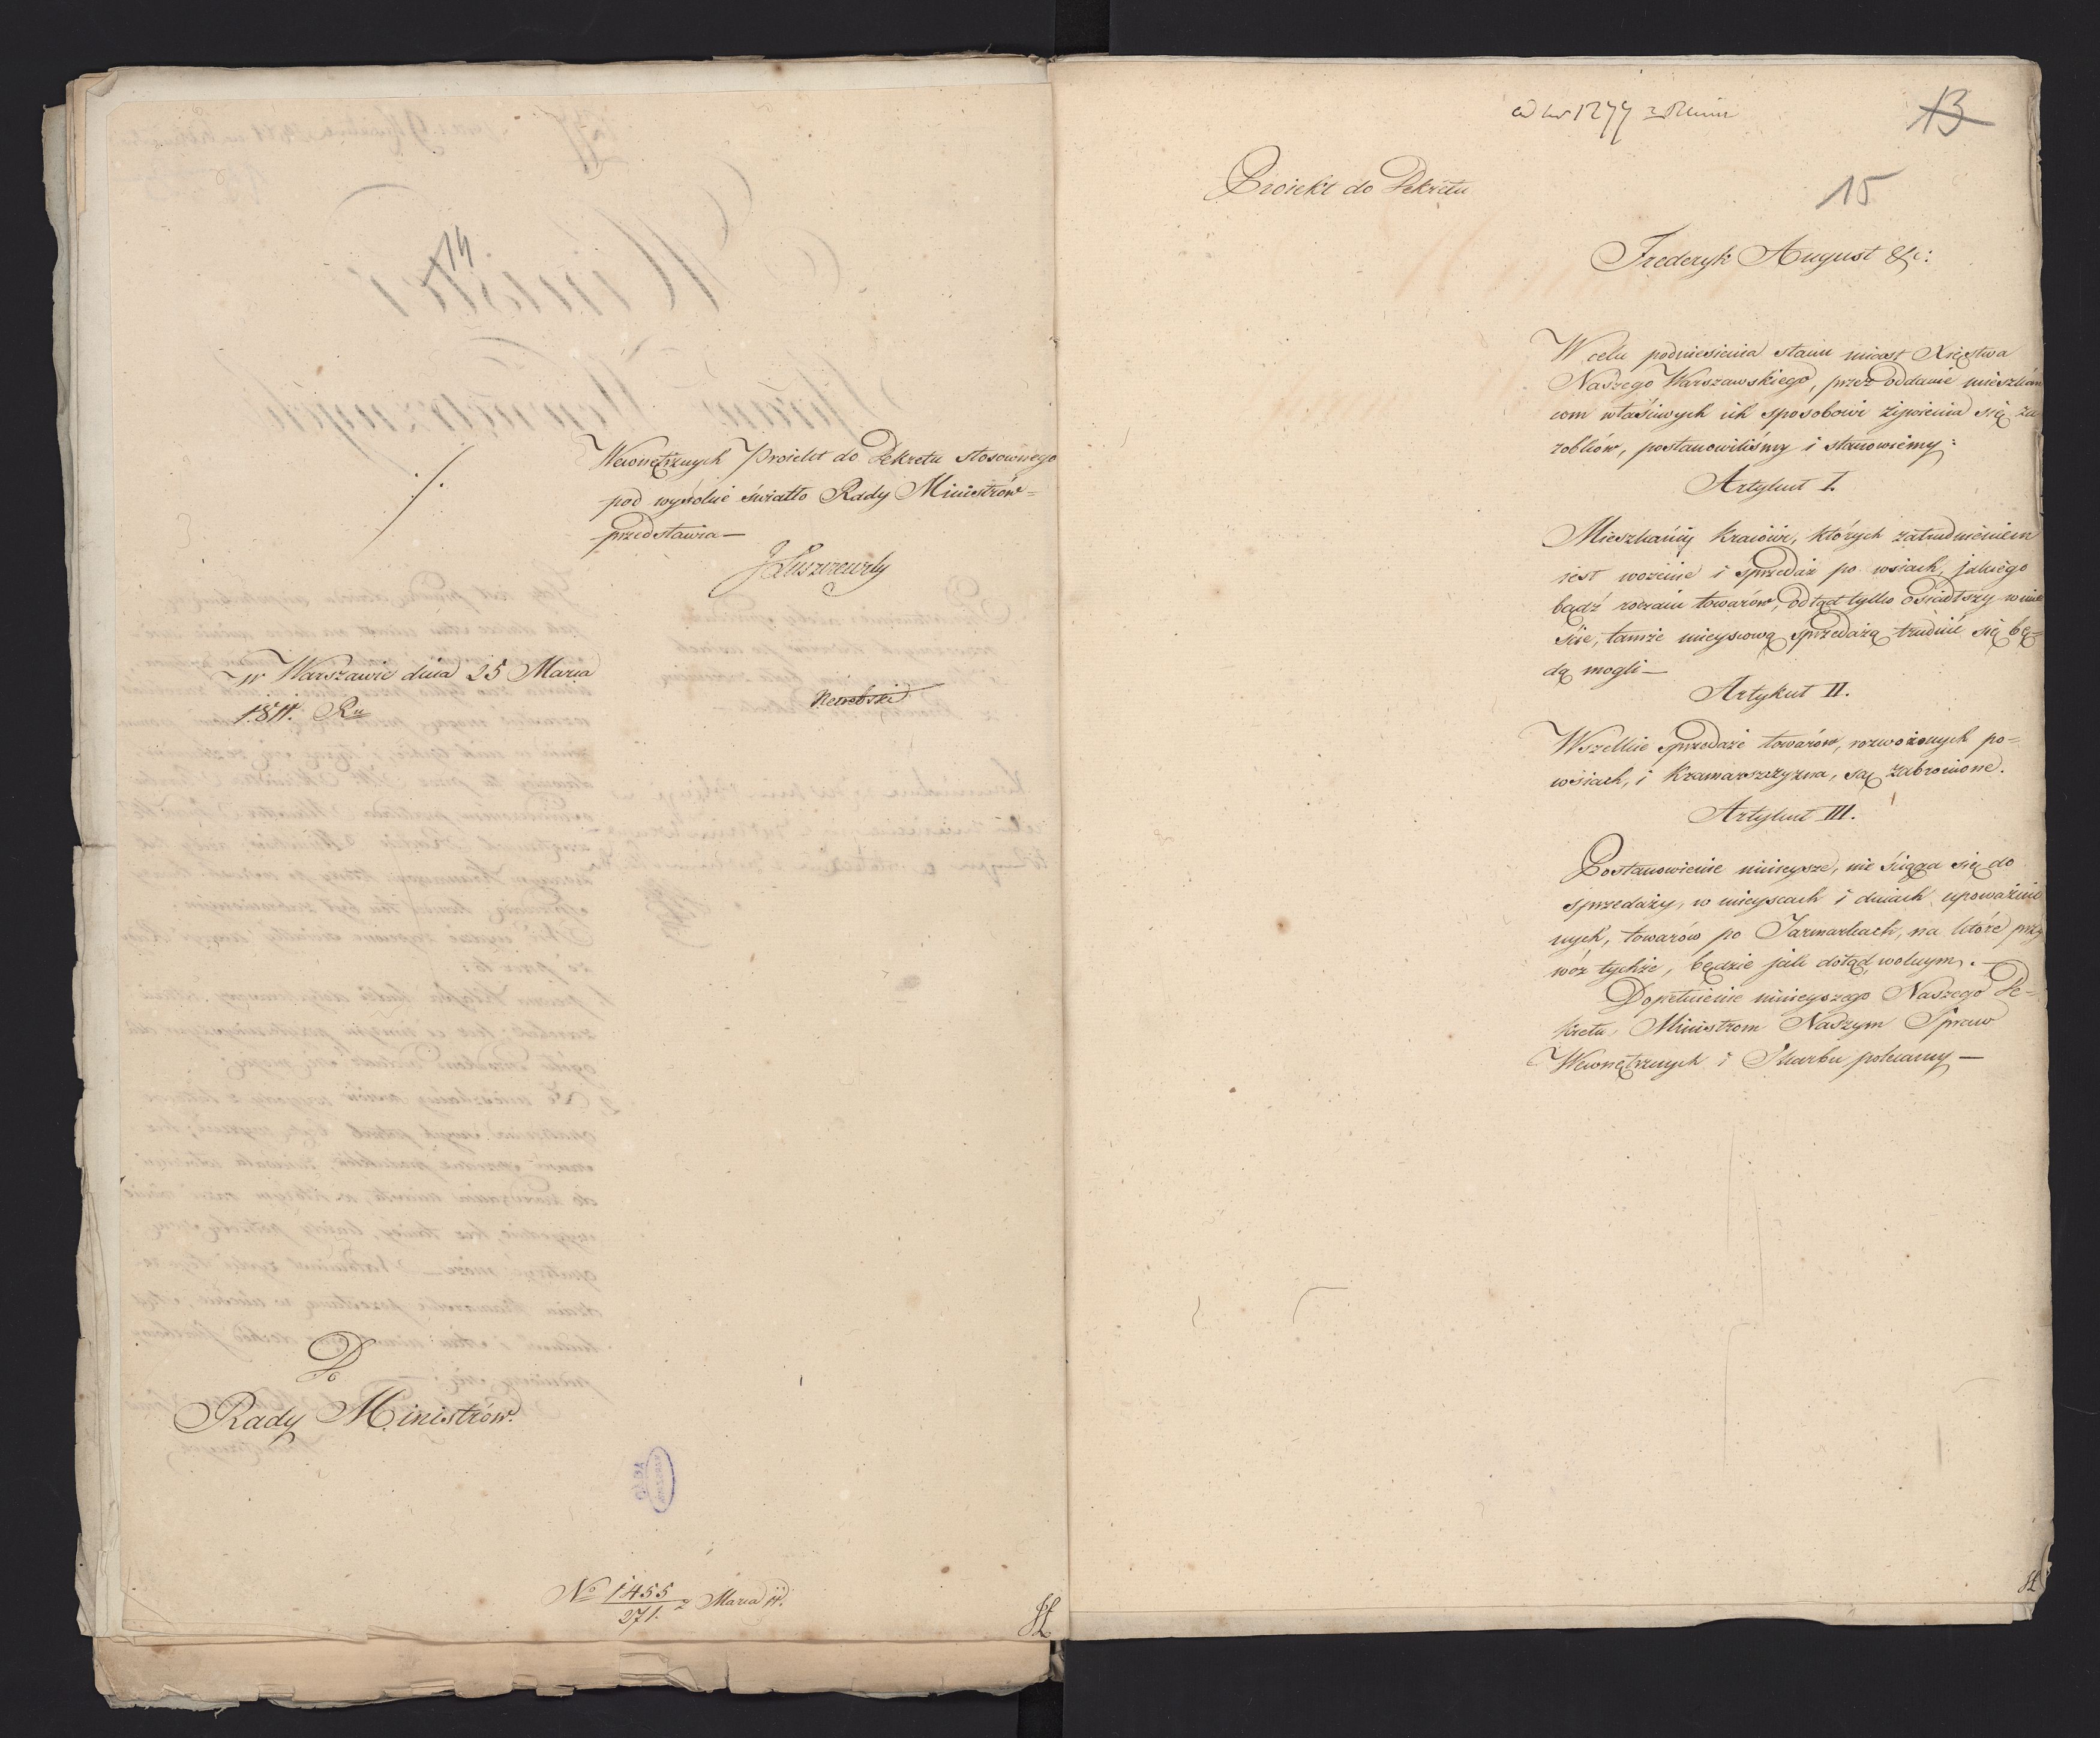 14
Wewnętrznych Proiekt do Dekretu stosownego
pod wysokie światło Rady Ministrów =
przedstawia —
JŁuszczewsky
w Warszawie dnia 25 Marca
1811. Ru
Do
Rady Ministrów.
No 1455/271. z Marca 11.
13
15
Proiekt do Dekretu
Frederyk August &c:
W celu podniesienia stanu miast Xięstwa
Naszego Warszawskiego, przez oddanie mieszkań
com właściwych ich sposobowi żywienia się za
robków, postanowiliśmy i stanowiemy:
Artykuł I.
Mieszkańcy kraiowi, których zatrudnieniem
iest wożenie i sprzedaż po wsiach, jakiego
bądź rodzaiu towarów, odtąd tylko osiadłszy w mie
ście, tamże mieyscową sprzedażą trudnić się bę=
dą mogli —
Artykuł II.
Wszelkie sprzedaże towarów, rozwożonych po=
wsiach, i kramarszczyzna, są zabronione.
Artykuł III.
Postanowienie ninieysze, nie ściąga się do
sprzedaży, w mieyscach i dniach upoważnio
nych, towarów po Jarmarkach, na które przy
wóz tychże, będzie jak dotąd wolnym. —
Dopełnienie ninieyszego Naszego De=
kretu, Ministrom Naszym Spraw
Wewnętrznych i Skarbu polecamy —